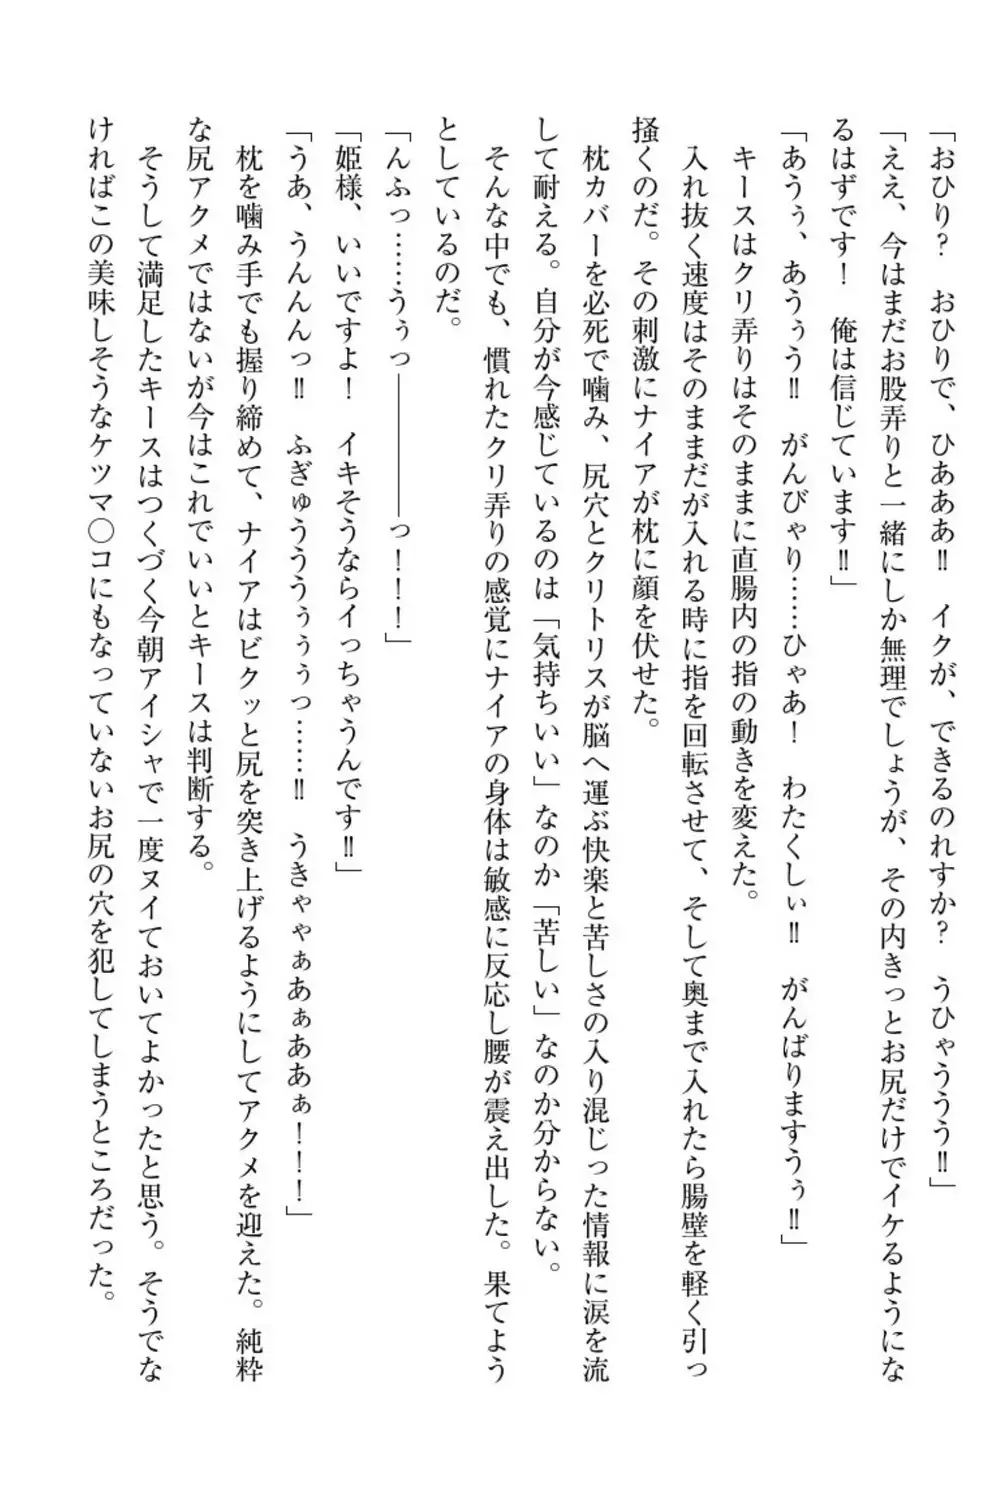 「おひり？　おひりで、ひあああ‼　イクが、できるのれすか？　うひゃううう‼」
「ええ、今はまだお股弄りと一緒にしか無理でしょうが、その内きっとお尻だけでイケるようにな
るはずです！　俺は信じています‼」
「あうぅ、あうぅう‼　がんびゃり……ひゃあ！　わたくしぃ‼　がんばりますうぅ‼」
　キースはクリ弄りはそのままに直腸内の指の動きを変えた。
　入れ抜く速度はそのままだが入れる時に指を回転させて、そして奥まで入れたら腸壁を軽く引っ
掻くのだ。その刺激にナイアが枕に顔を伏せた。
　枕カバーを必死で噛み、尻穴とクリトリスが脳へ運ぶ快楽と苦しさの入り混じった情報に涙を流
して耐える。自分が今感じているのは「気持ちいい」なのか「苦しい」なのか分からない。
　そんな中でも、慣れたクリ弄りの感覚にナイアの身体は敏感に反応し腰が震え出した。果てよう
としているのだ。
「んふっ……うぅっ――――――っ！！！」
「姫様、いいですよ！　イキそうならイっちゃうんです‼」
「うあ、うんんんっ‼　ふぎゅうううぅぅぅっ……‼　うきゃゃぁあぁああぁ！！！」
　枕を噛み手でも握り締めて、ナイアはビクッと尻を突き上げるようにしてアクメを迎えた。純粋
な尻アクメではないが今はこれでいいとキースは判断する。
　そうして満足したキースはつくづく今朝アイシャで一度ヌイておいてよかったと思う。そうでな
ければこの美味しそうなケツマ〇コにもなっていないお尻の穴を犯してしまうところだった。